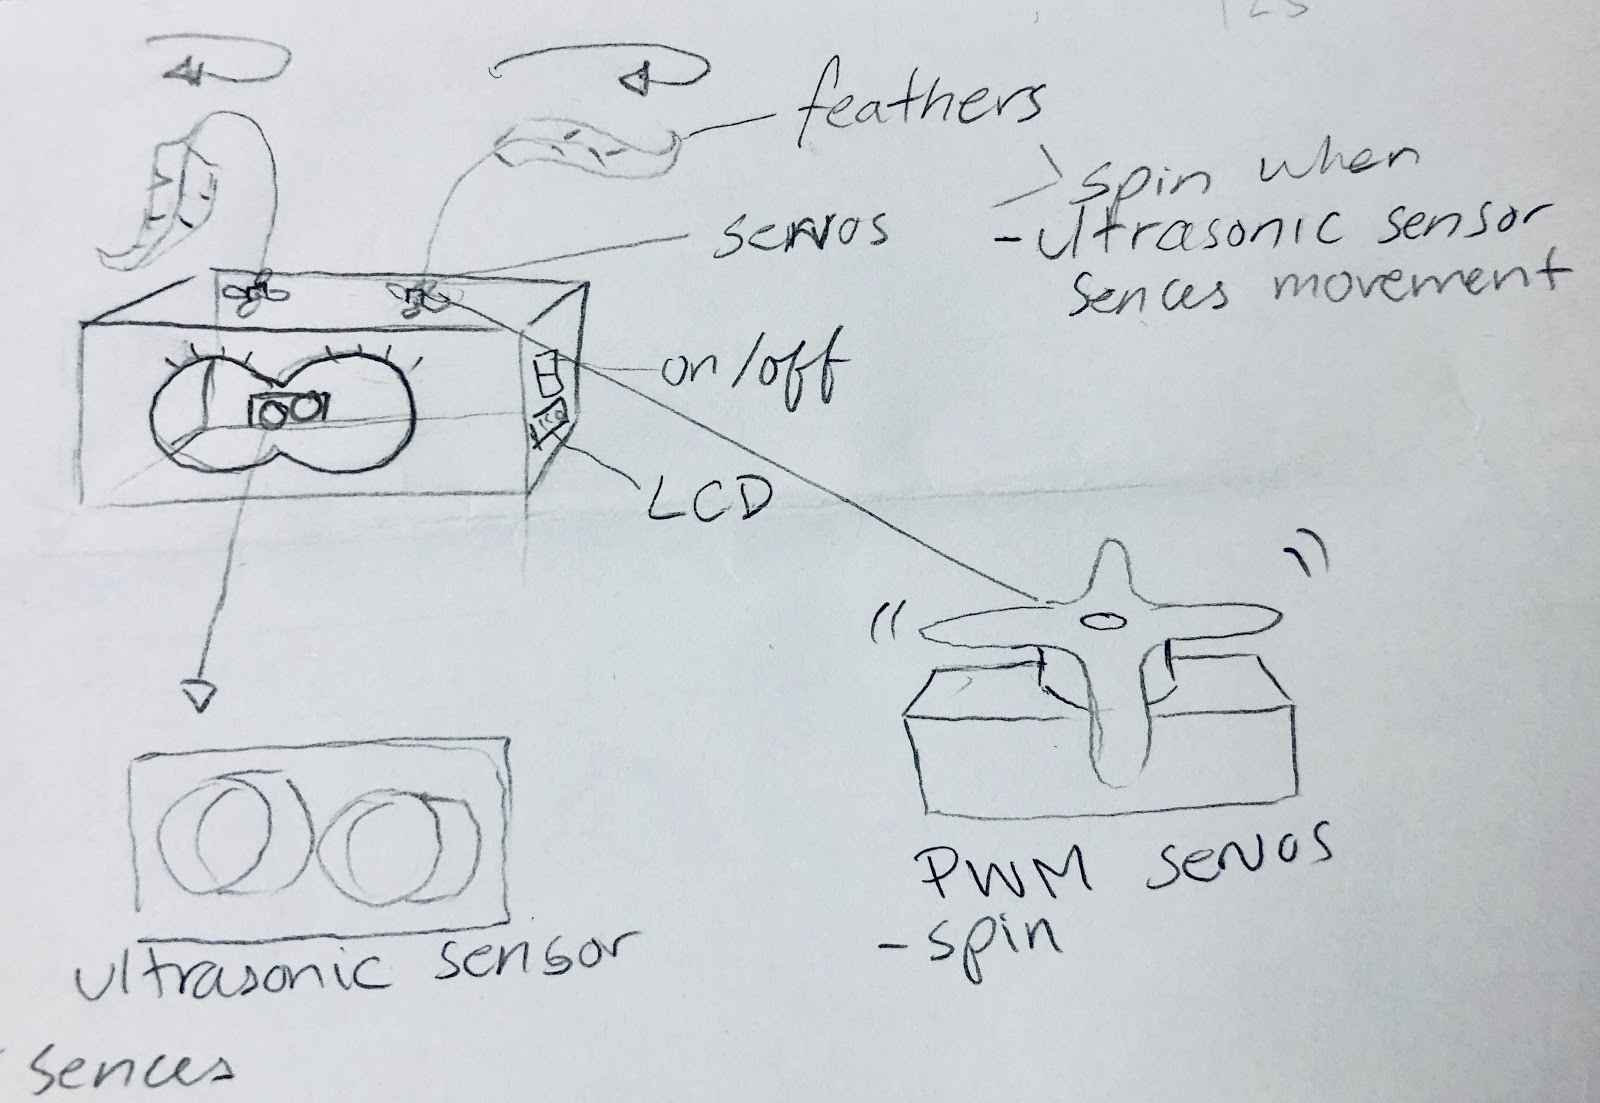 feathers
> spin when
- ultrasonic sensor
sences movement
servos
on/off
LCD
PWM servos
- spin
ultrasonic sensor
- sences